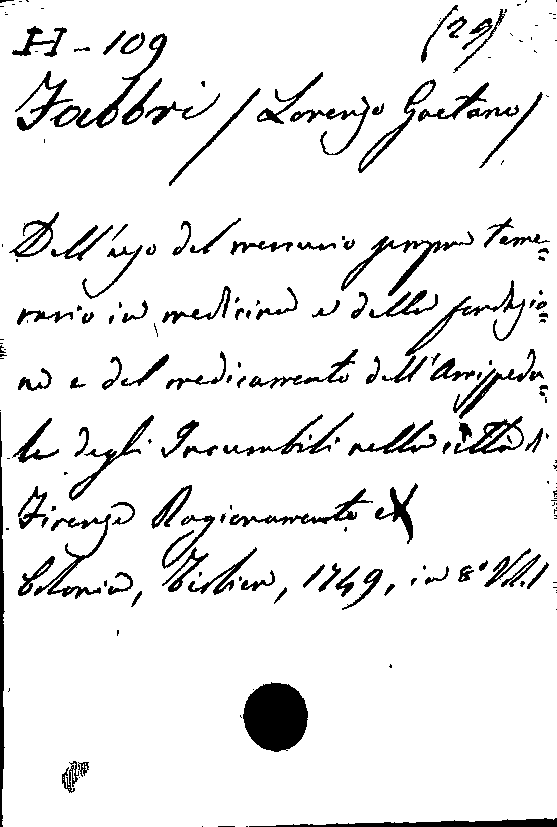 H - 109 (29)
Fabbri / Lorenzo Gaetano /
Dell'uso del mercurio sempre teme=
rario in medicina e della fondazio=
ne e del medicamento dell'Arcispeda=
le degli Incurabili nella città di
Firenze Ragionamento
Colonia, 1749, in 8° Vol. 1